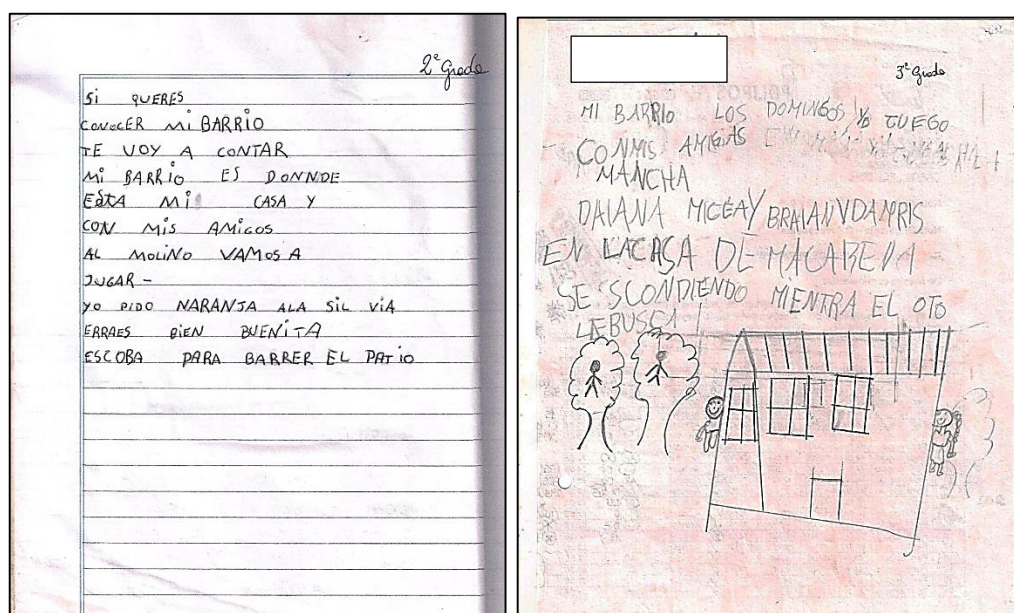 2º Grado
SI QUERES
CONOCER MI BARRIO
TE VOY A CONTAR
MI BARRIO ES DONNDE
ESTA MI CASA Y
CON MIS AMIGOS
AL MOLINO VAMOS A
JUGAR-
YO PIDO NARANJA ALA SIL VIA
ERRAES BIEN BUENITA
ESCOBA PARA BARRER EL PATIO
3º Grado
MI BARRIO LOS DOMINGOS YO JUEGO
CON MIS AMIGAS
MANCHA
DAIANA MICEAY BRAIAN
EN LACASA DE MACARENA
SE SCONDIENDO MIENTRA EL OTO
LEBUSCA